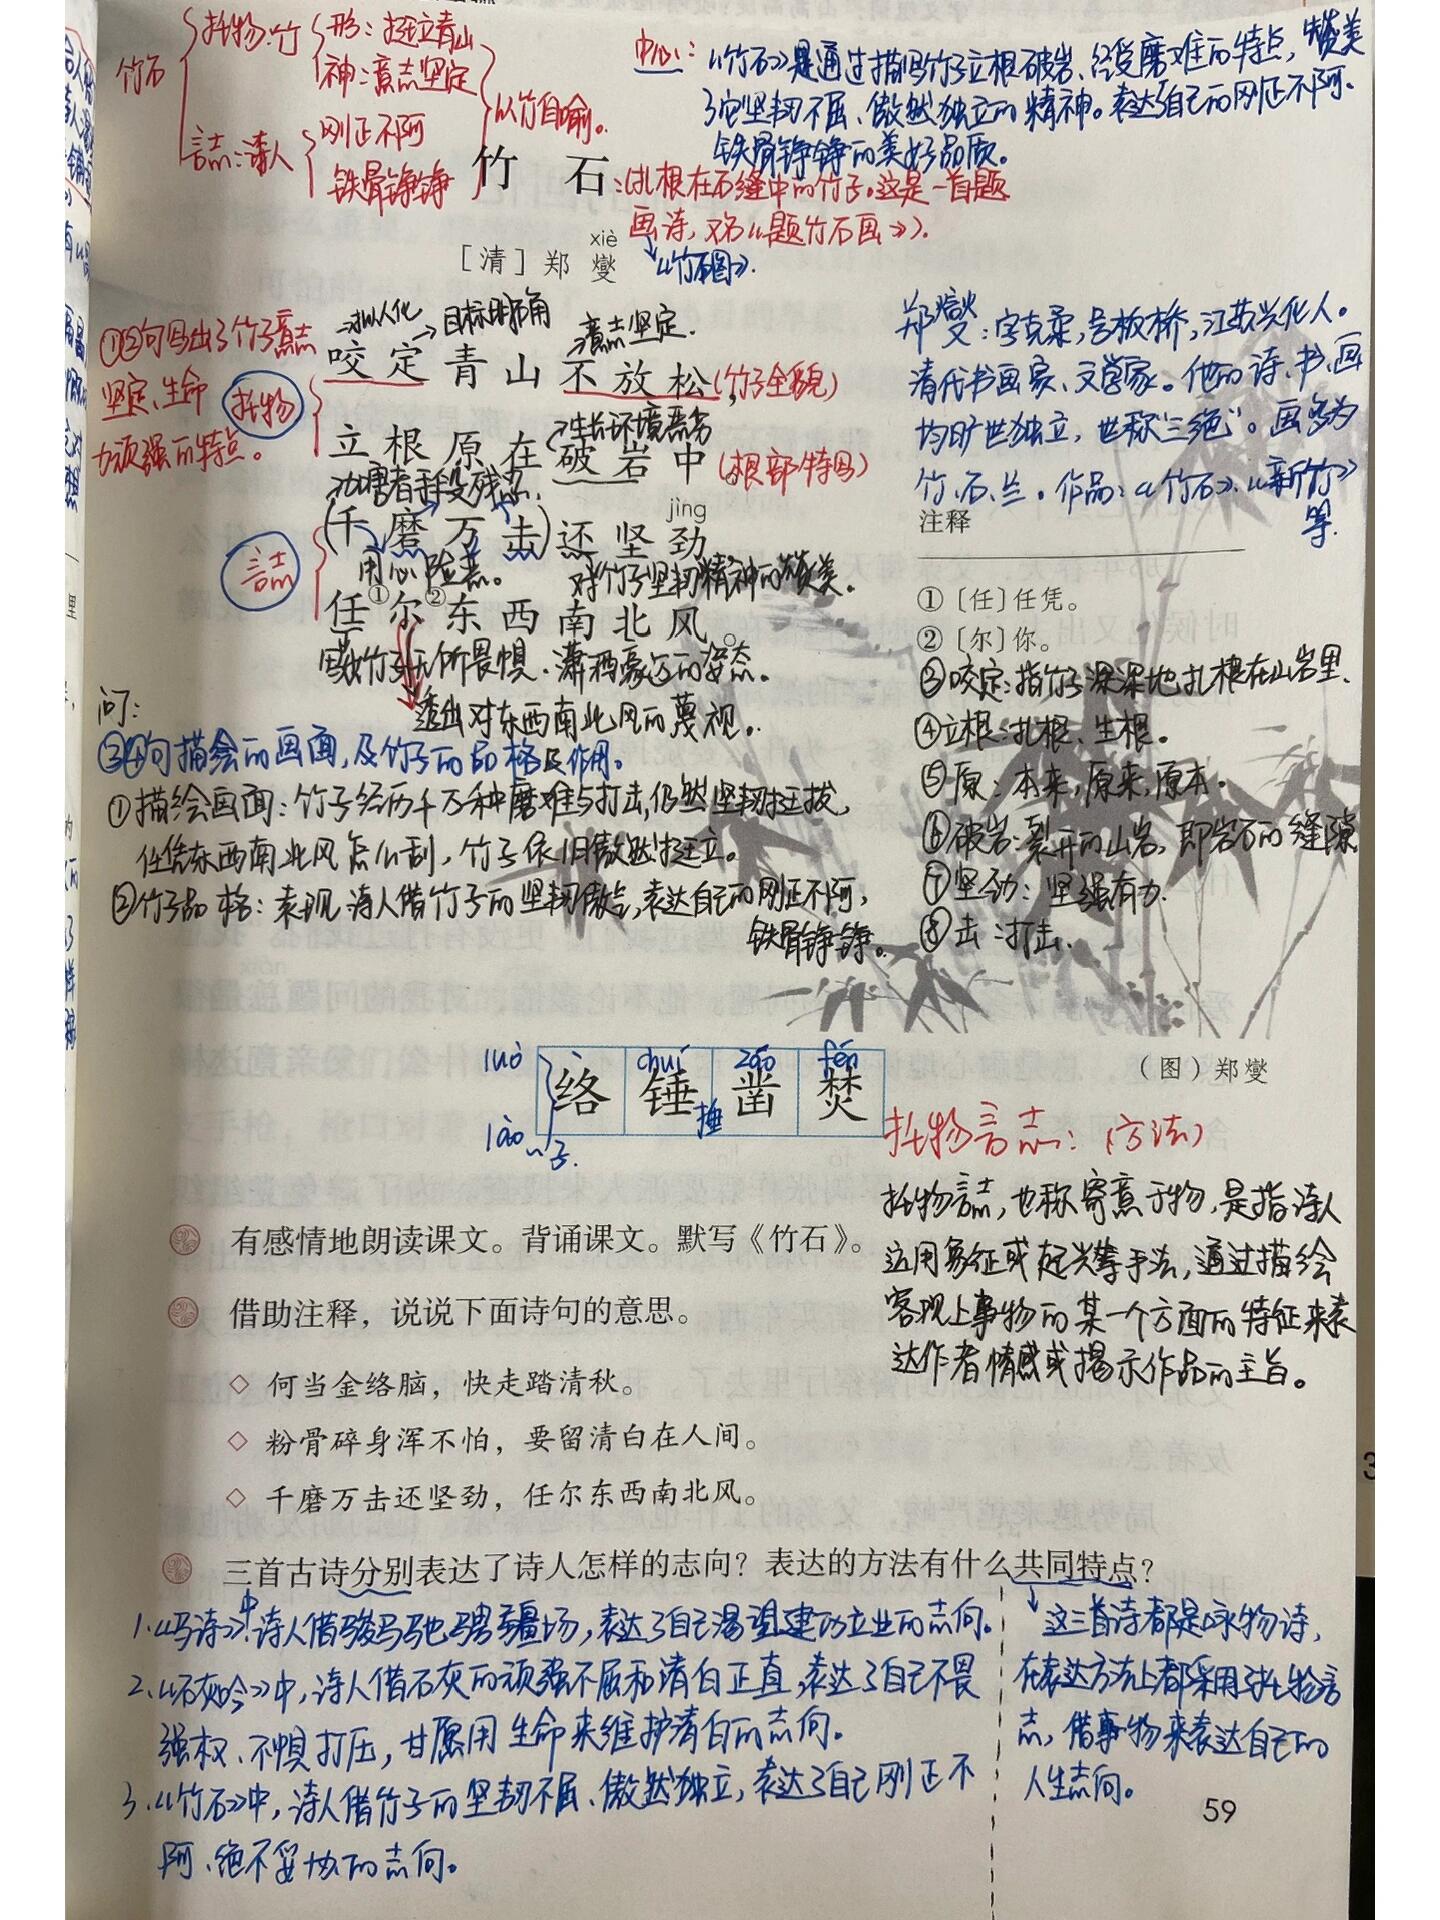 竹石
托物:竹
形：挺立青山
神：意志坚定
言志:诗人
刚正不阿
铁骨铮铮
以竹自喻。
中心：《竹石》是通过描写竹子立根破岩、经受磨难的特点，赞美
了它坚韧不屈、傲然独立的精神。表达了自己的刚正不阿、
铁骨铮铮的美好品质。
竹 石
:(扎根在石缝中的竹子。这是一首题
画诗，又名《题竹石画》).
《竹石图》.
xiè
［清］郑 燮
郑燮：字克柔，号板桥，江苏兴化人。
清代书画家、文学家。他的诗、书、画
均旷世独立，世称“三绝”。画多为
竹、石、兰。作品：《竹石》、《新竹》
等.
①②句写出了竹子意志
坚定、生命
力顽强的特点。
托物
拟人化
目标明确
意志坚定.
咬定青山不放松，
(竹子全貌)
生长环境恶劣
立根原在破岩中
(根部特写)
加害者手段残忍.
jìng
(千磨万击)还坚劲，
用心险恶。
对竹子坚韧精神的赞美。
言志
任①尔②东西南北风。
竹子无所畏惧、潇洒豪迈的姿态。
透出对东西南北风的蔑视。
注释
①〔任〕任凭。
②〔尔〕你。
③咬定：指竹子深深地扎根在山岩里.
④立根：扎根、生根。
⑤原：本来，原来，原本。
⑥破岩：裂开的山岩，即岩石的缝隙
⑦坚劲：坚强有力.
⑧击：打击.
问：
③④句描绘的画面，及竹子的品格及作用。
①描绘画面：竹子经历千万种磨难与打击，仍然坚韧挺拔，
任凭东西南北风怎么刮，竹子依旧傲然挺立。
②竹子品格：表现诗人借竹子的坚韧傲岂，表达自己的刚正不阿，
铁骨铮铮。
（图）郑燮
luò
chuí
záo
fén
络 锤 凿 焚
捶
lào
~子.
托物言志：（方法）
托物言志，也称寄意于物，是指诗人
运用象征或起兴等手法，通过描绘
客观上事物的某一个方面的特征来表
达作者情感或揭示作品的主旨。
有感情地朗读课文。背诵课文。默写《竹石》。
借助注释，说说下面诗句的意思。
◇ 何当金络脑，快走踏清秋。
◇ 粉骨碎身浑不怕，要留清白在人间。
◇ 千磨万击还坚劲，任尔东西南北风。
三首古诗分别表达了诗人怎样的志向？表达的方法有什么共同特点？
1.《马诗》中:诗人借骏马驰骋疆场，表达了自己渴望建功立业的志向。
2.《石灰吟》中，诗人借石灰的顽强不屈和清白正直，表达了自己不畏
强权、不惧打压，甘愿用生命来维护清白的志向。
3.《竹石》中，诗人借竹子的坚韧不屈、傲然独立，表达了自己刚正不
阿、绝不妥协的志向。
这三首诗都是咏物诗，
在表达方法上都采用了托物言
志，借事物来表达自己的
人生志向。
59